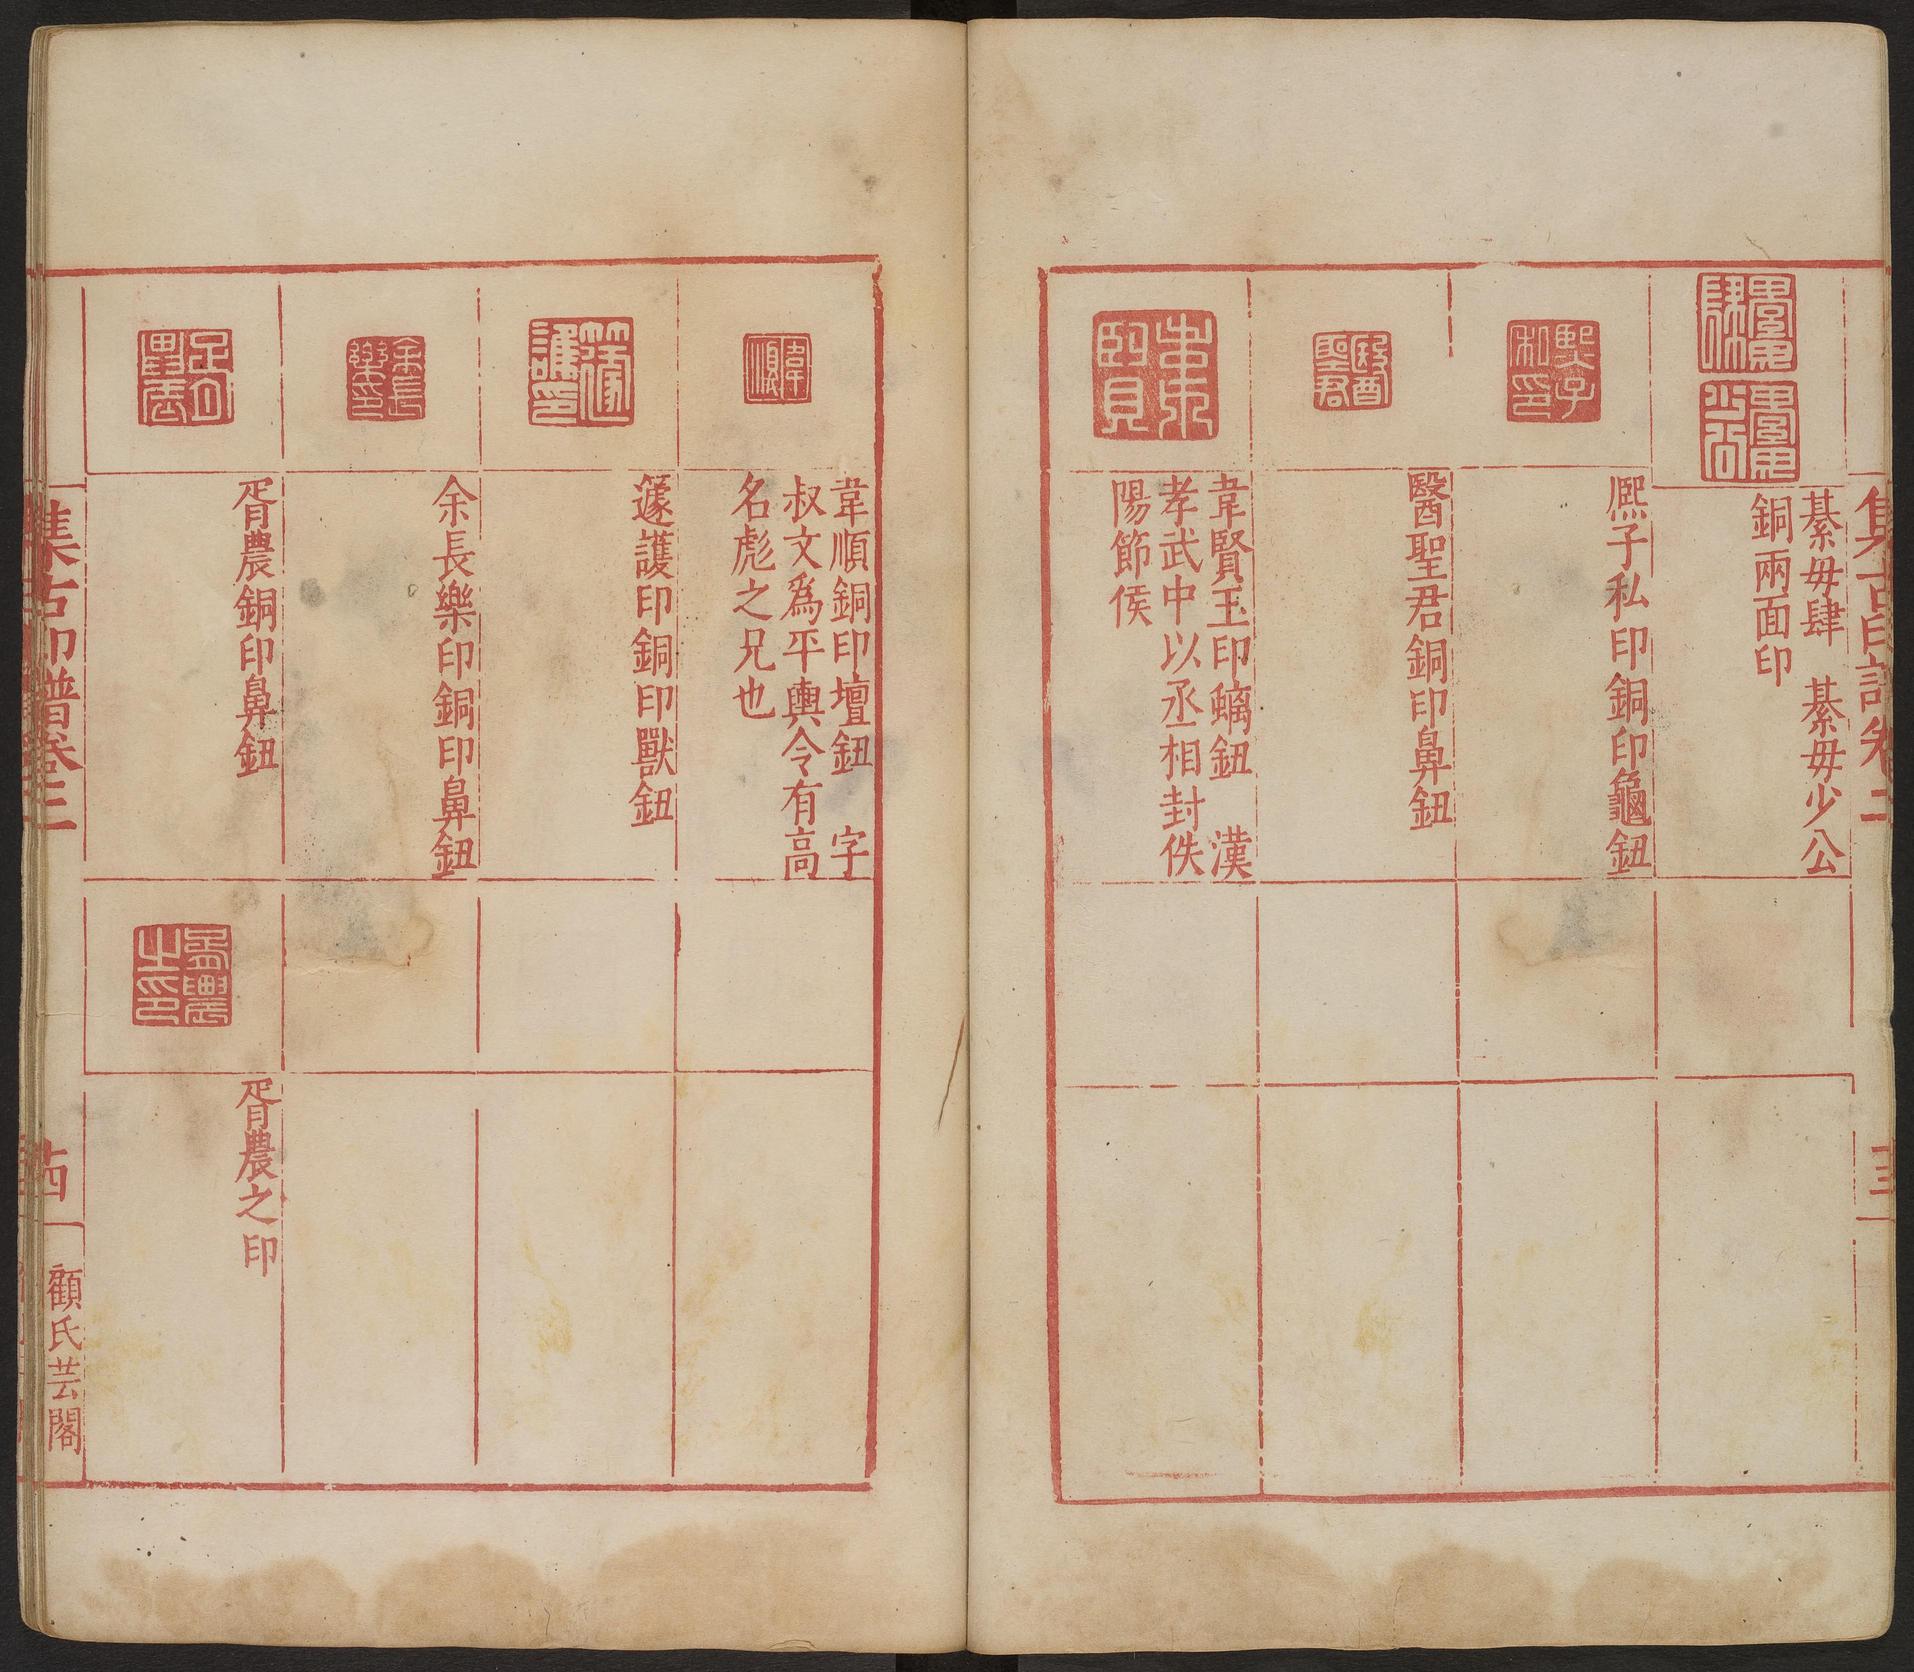 綦毋肆　綦毋少公
銅兩面印
熈子私印銅印龜鈕
醫聖君銅印鼻鈕
韋賢玉印螭鈕　漢
孝武中以丞相封佚
陽節侯
韋順銅印壇鈕　字
叔文爲平輿令有高
名彪之兄也
籧護印銅印獸鈕
余長樂印銅印鼻鈕
胥農銅印鼻鈕
胥農之印
集古印譜卷三
顧氏芸閣